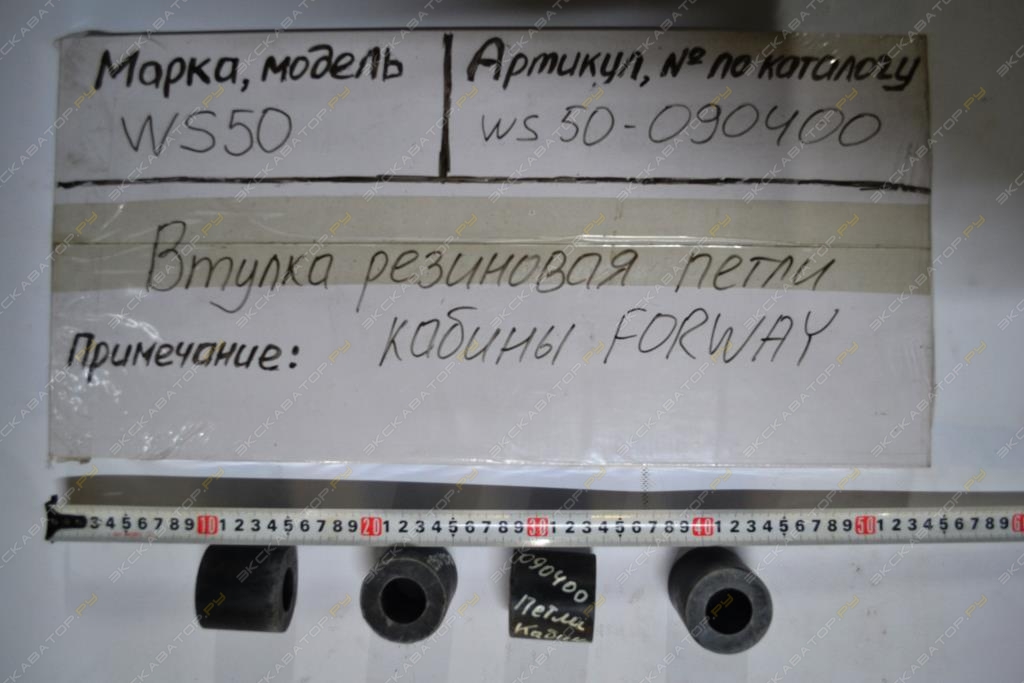 Марка, модель
Артикул, № по каталогу
WS50
WS50-090400
Втулка резиновая петли
Примечание: кабины FORWAY
3 4 5 6 7 8 9 10 1 2 3 4 5 6 7 8 9 20 1 2 3 4 5 6 7 8 9 30 1 2 3 4 5 6 7 8 9 40 1 2 3 4 5 6 7 8 9 50 1 2 3 4 5 6 7 8 9 6
090400
Петли
Кабин
ЭКСКАВАТОР.РУ